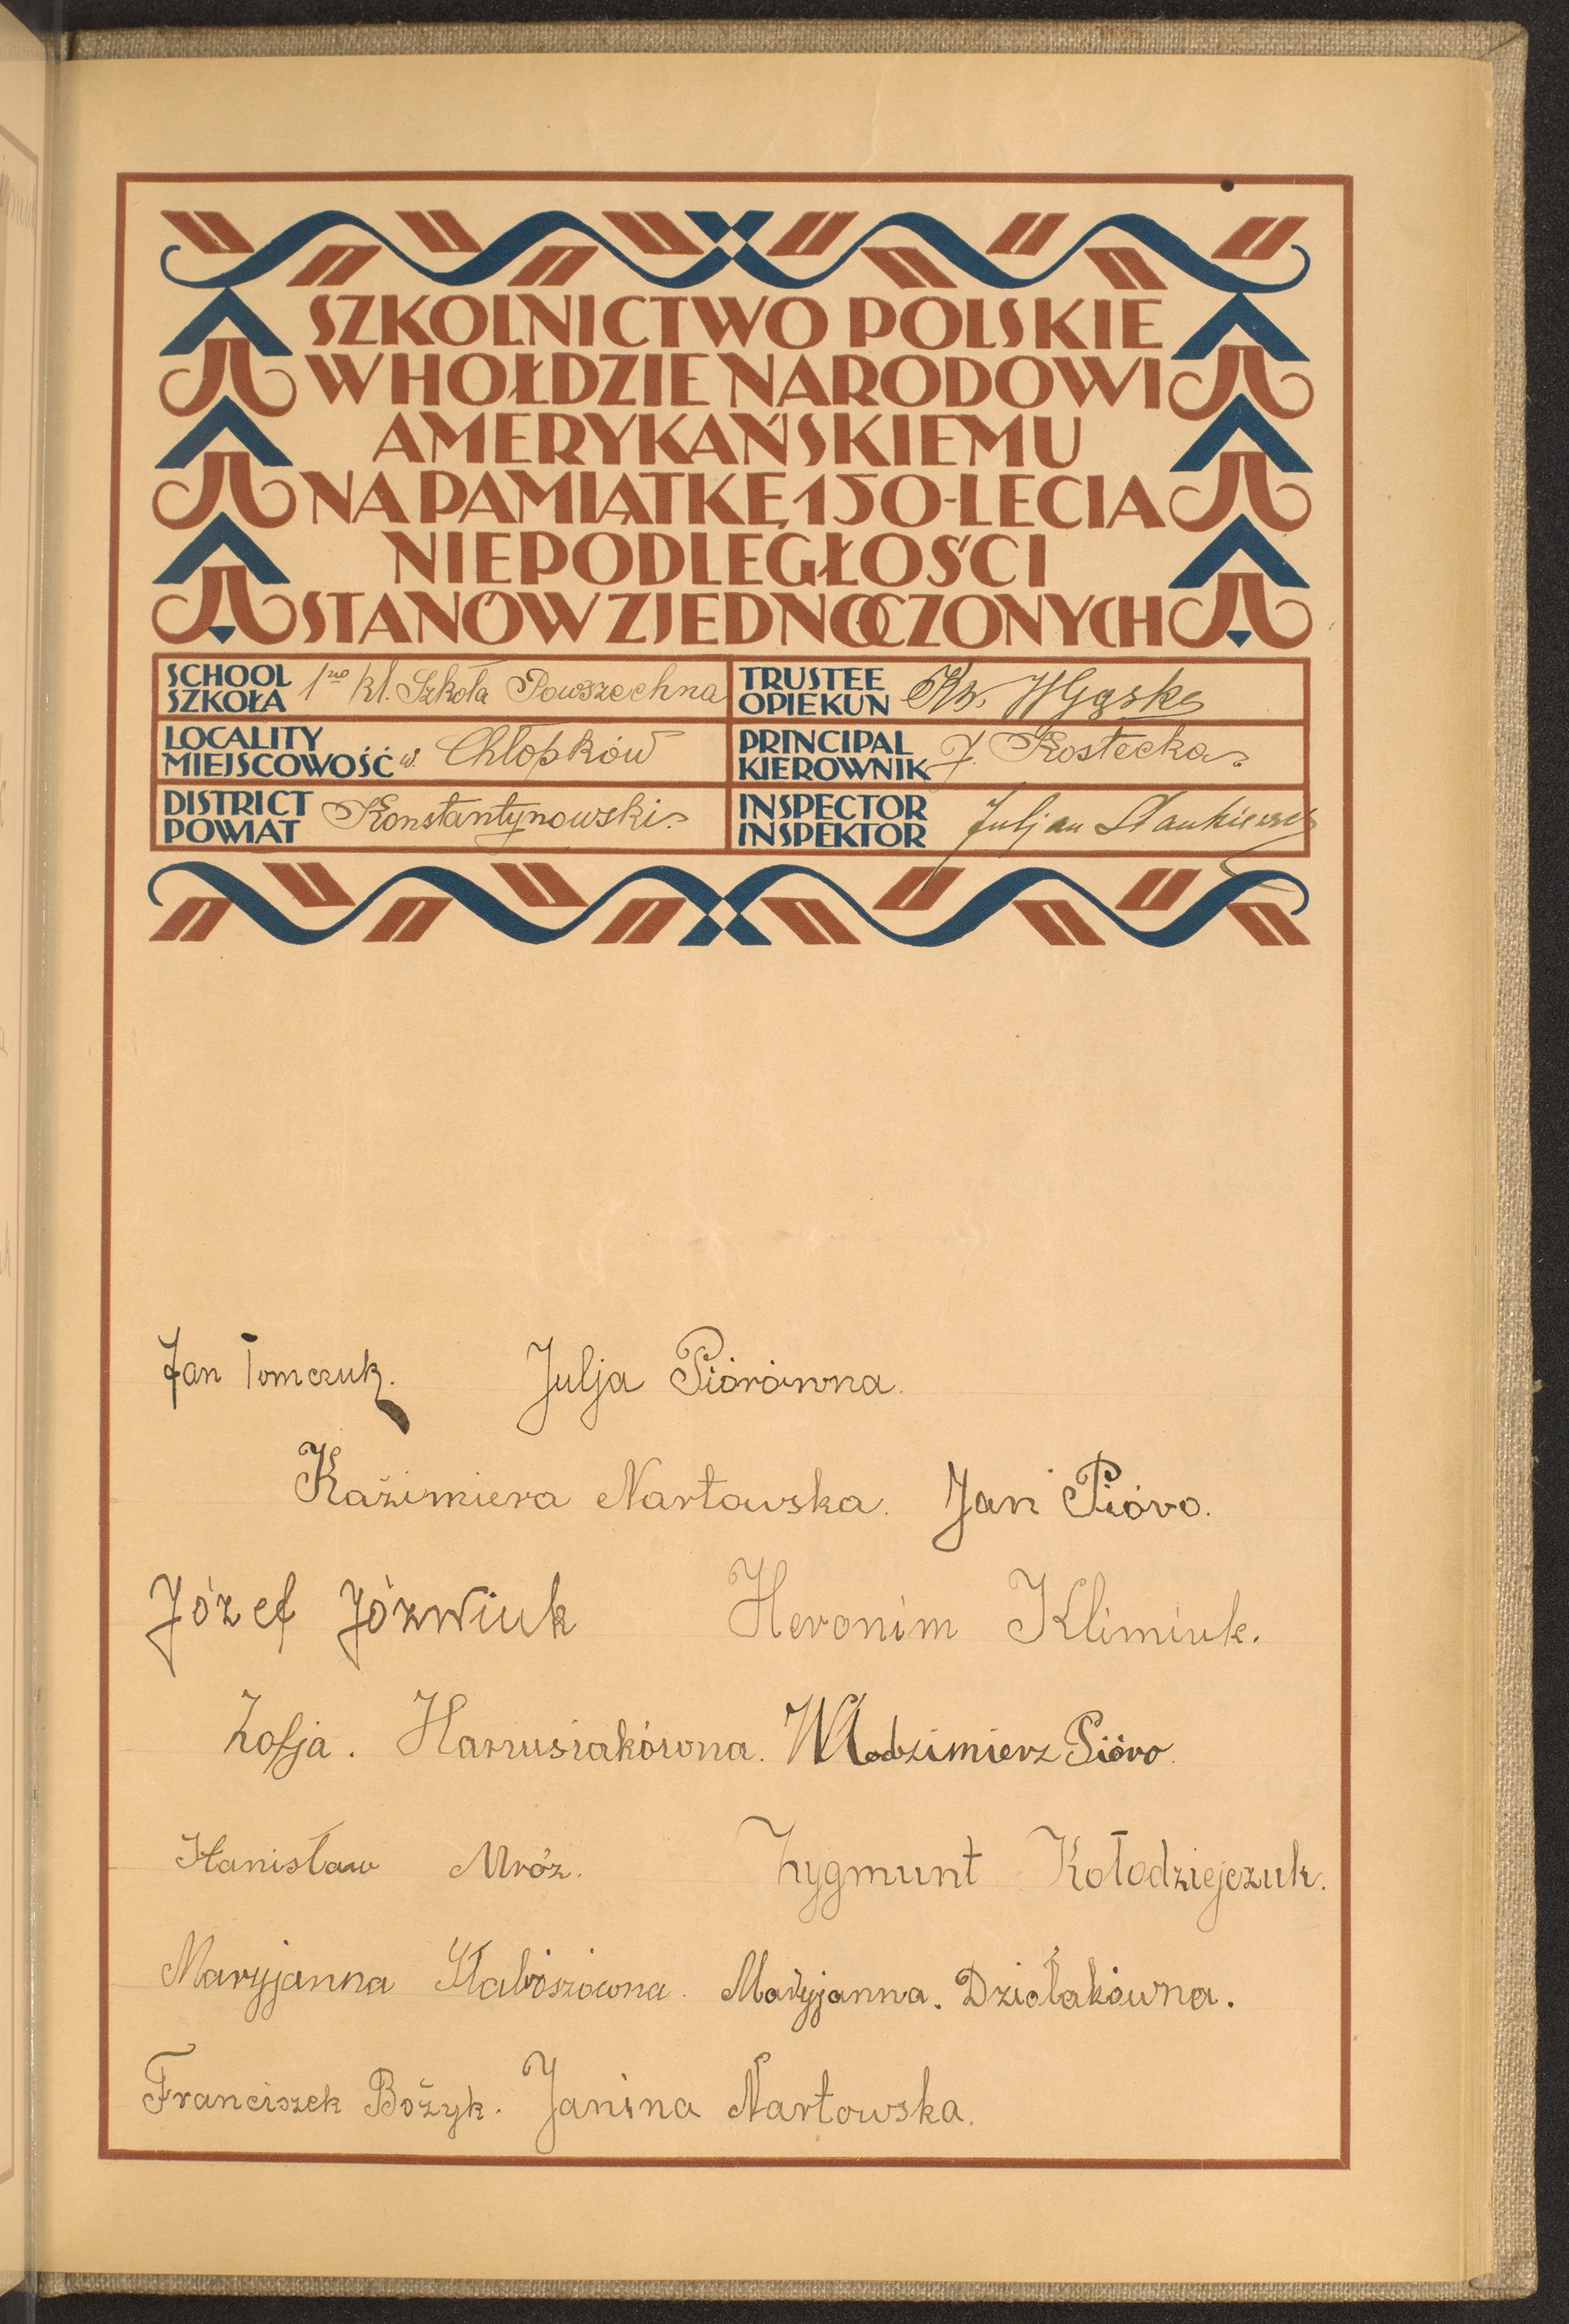 SZKOLNICTWO POLSKIE
W HOŁDZIE NARODOWI
AMERYKAŃSKIEMU
NA PAMIĄTKĘ 150-LECIA
NIEPODLEGŁOŚCI
STANÓW ZJEDNOCZONYCH
SCHOOL
SZKOŁA 1no kl. Szkoła Powszechna
TRUSTEE
OPIEKUN
LOCALITY
MIEJSCOWOŚĆ w. Chłopków
PRINCIPAL
KIEROWNIK J. Kostecka
DISTRICT
POWIAT Konstantynowski
INSPECTOR
INSPEKTOR Juljan
Jan Tomczuk. Julja Piórówna.
Kaźimiera Nartowska. Jan Pióro.
Józef Józwiuk Heronim Klimiuk.
Zofja. Harrusiakówna. Włodzimierz Pióro.
Stanisław Mróz. Zygmunt Kołodziejczuk.
Maryjanna Maryjanna. Dziołakówna.
Franciszek Bożyk. Janina Nartowska.